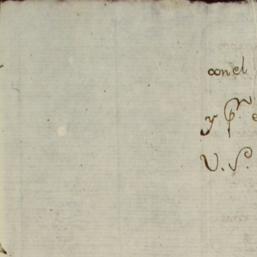 con el
y pr
V. S.